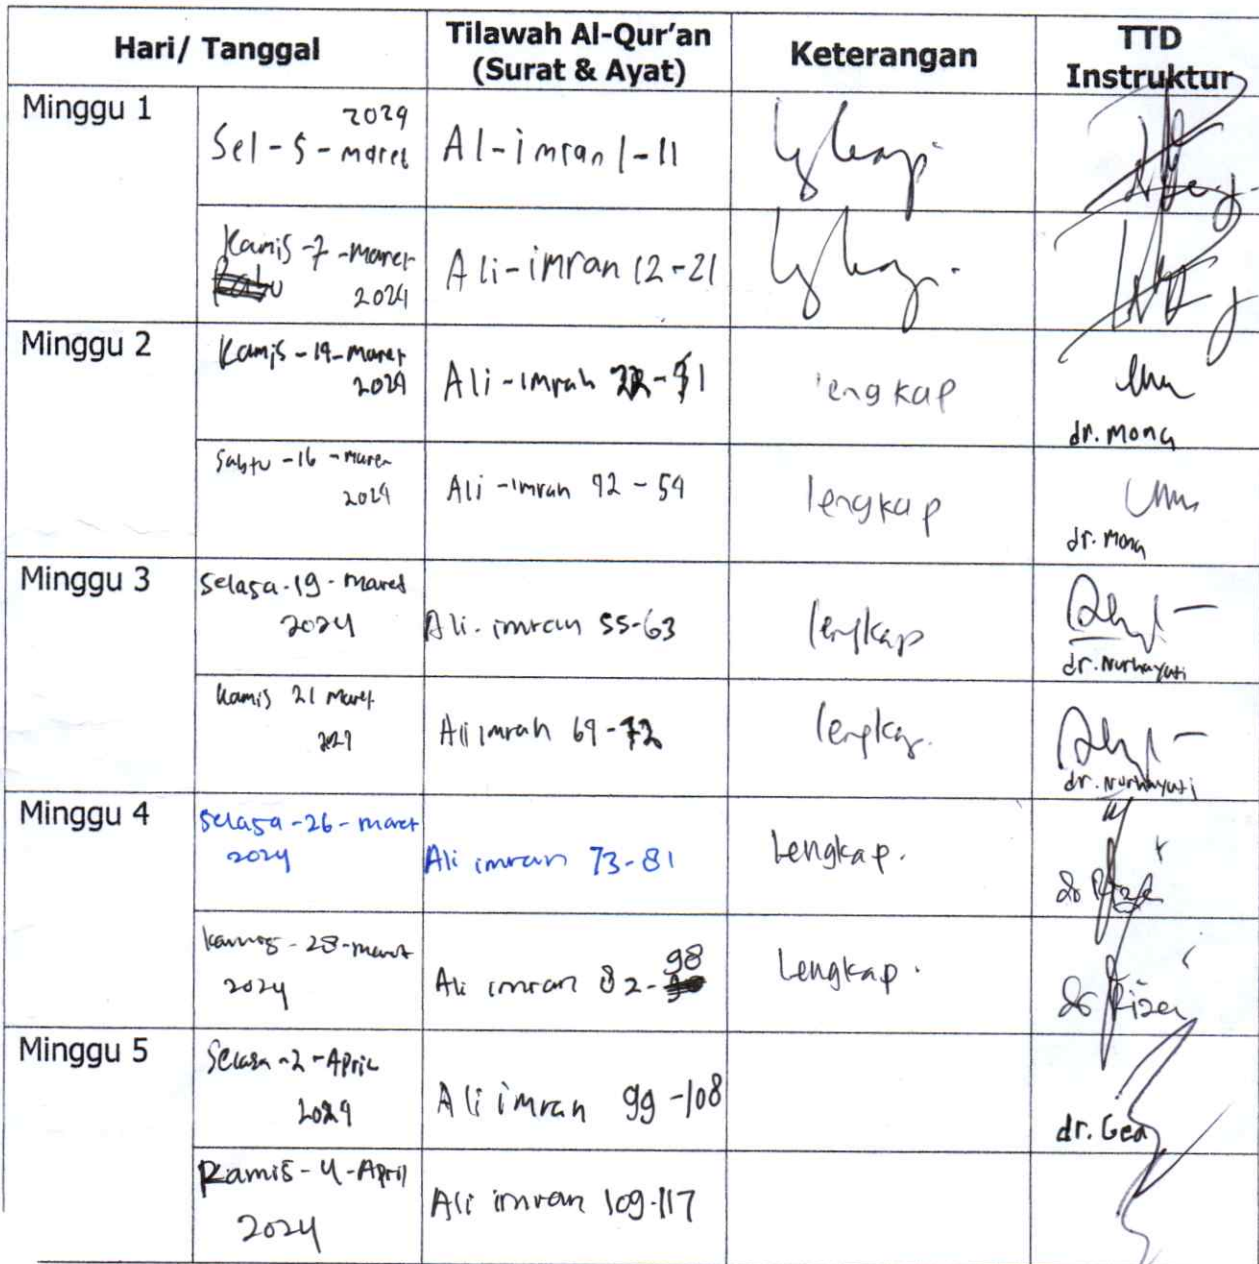 Hari/ Tanggal
Tilawah Al-Qur'an
(Surat & Ayat)
Keterangan
TTD
Instruktur
Minggu 1
2024
Sel - 5 - maret
Al-imran 1-11
Kamis -7 -maret
2024
Ali-imran 12-21
Minggu 2
Kamis - 14 - maret
2024
Ali-imran
lengkap
dr. Mona
Sabtu - 16 - maret
2024
Ali-imran 42 - 54
lengkap
dr. Mona
Minggu 3
Selasa - 19 - Maret
2024
Ali-imran 55-63
lengkap
dr. Nurhayati
Kamis 21 Maret
2024
Ali imran 64-72
lengkap
dr. Nurhayati
Minggu 4
Selasa - 26 - maret
2024
Ali imran 73-81
Lengkap.
Kamis - 28 - maret
2024
98
Ali imran 82-
Lengkap.
Minggu 5
Selasa - 2 - April
2024
Ali imran 99 -108
dr. Gea
Kamis - 4 - April
2024
Ali imran 109-117